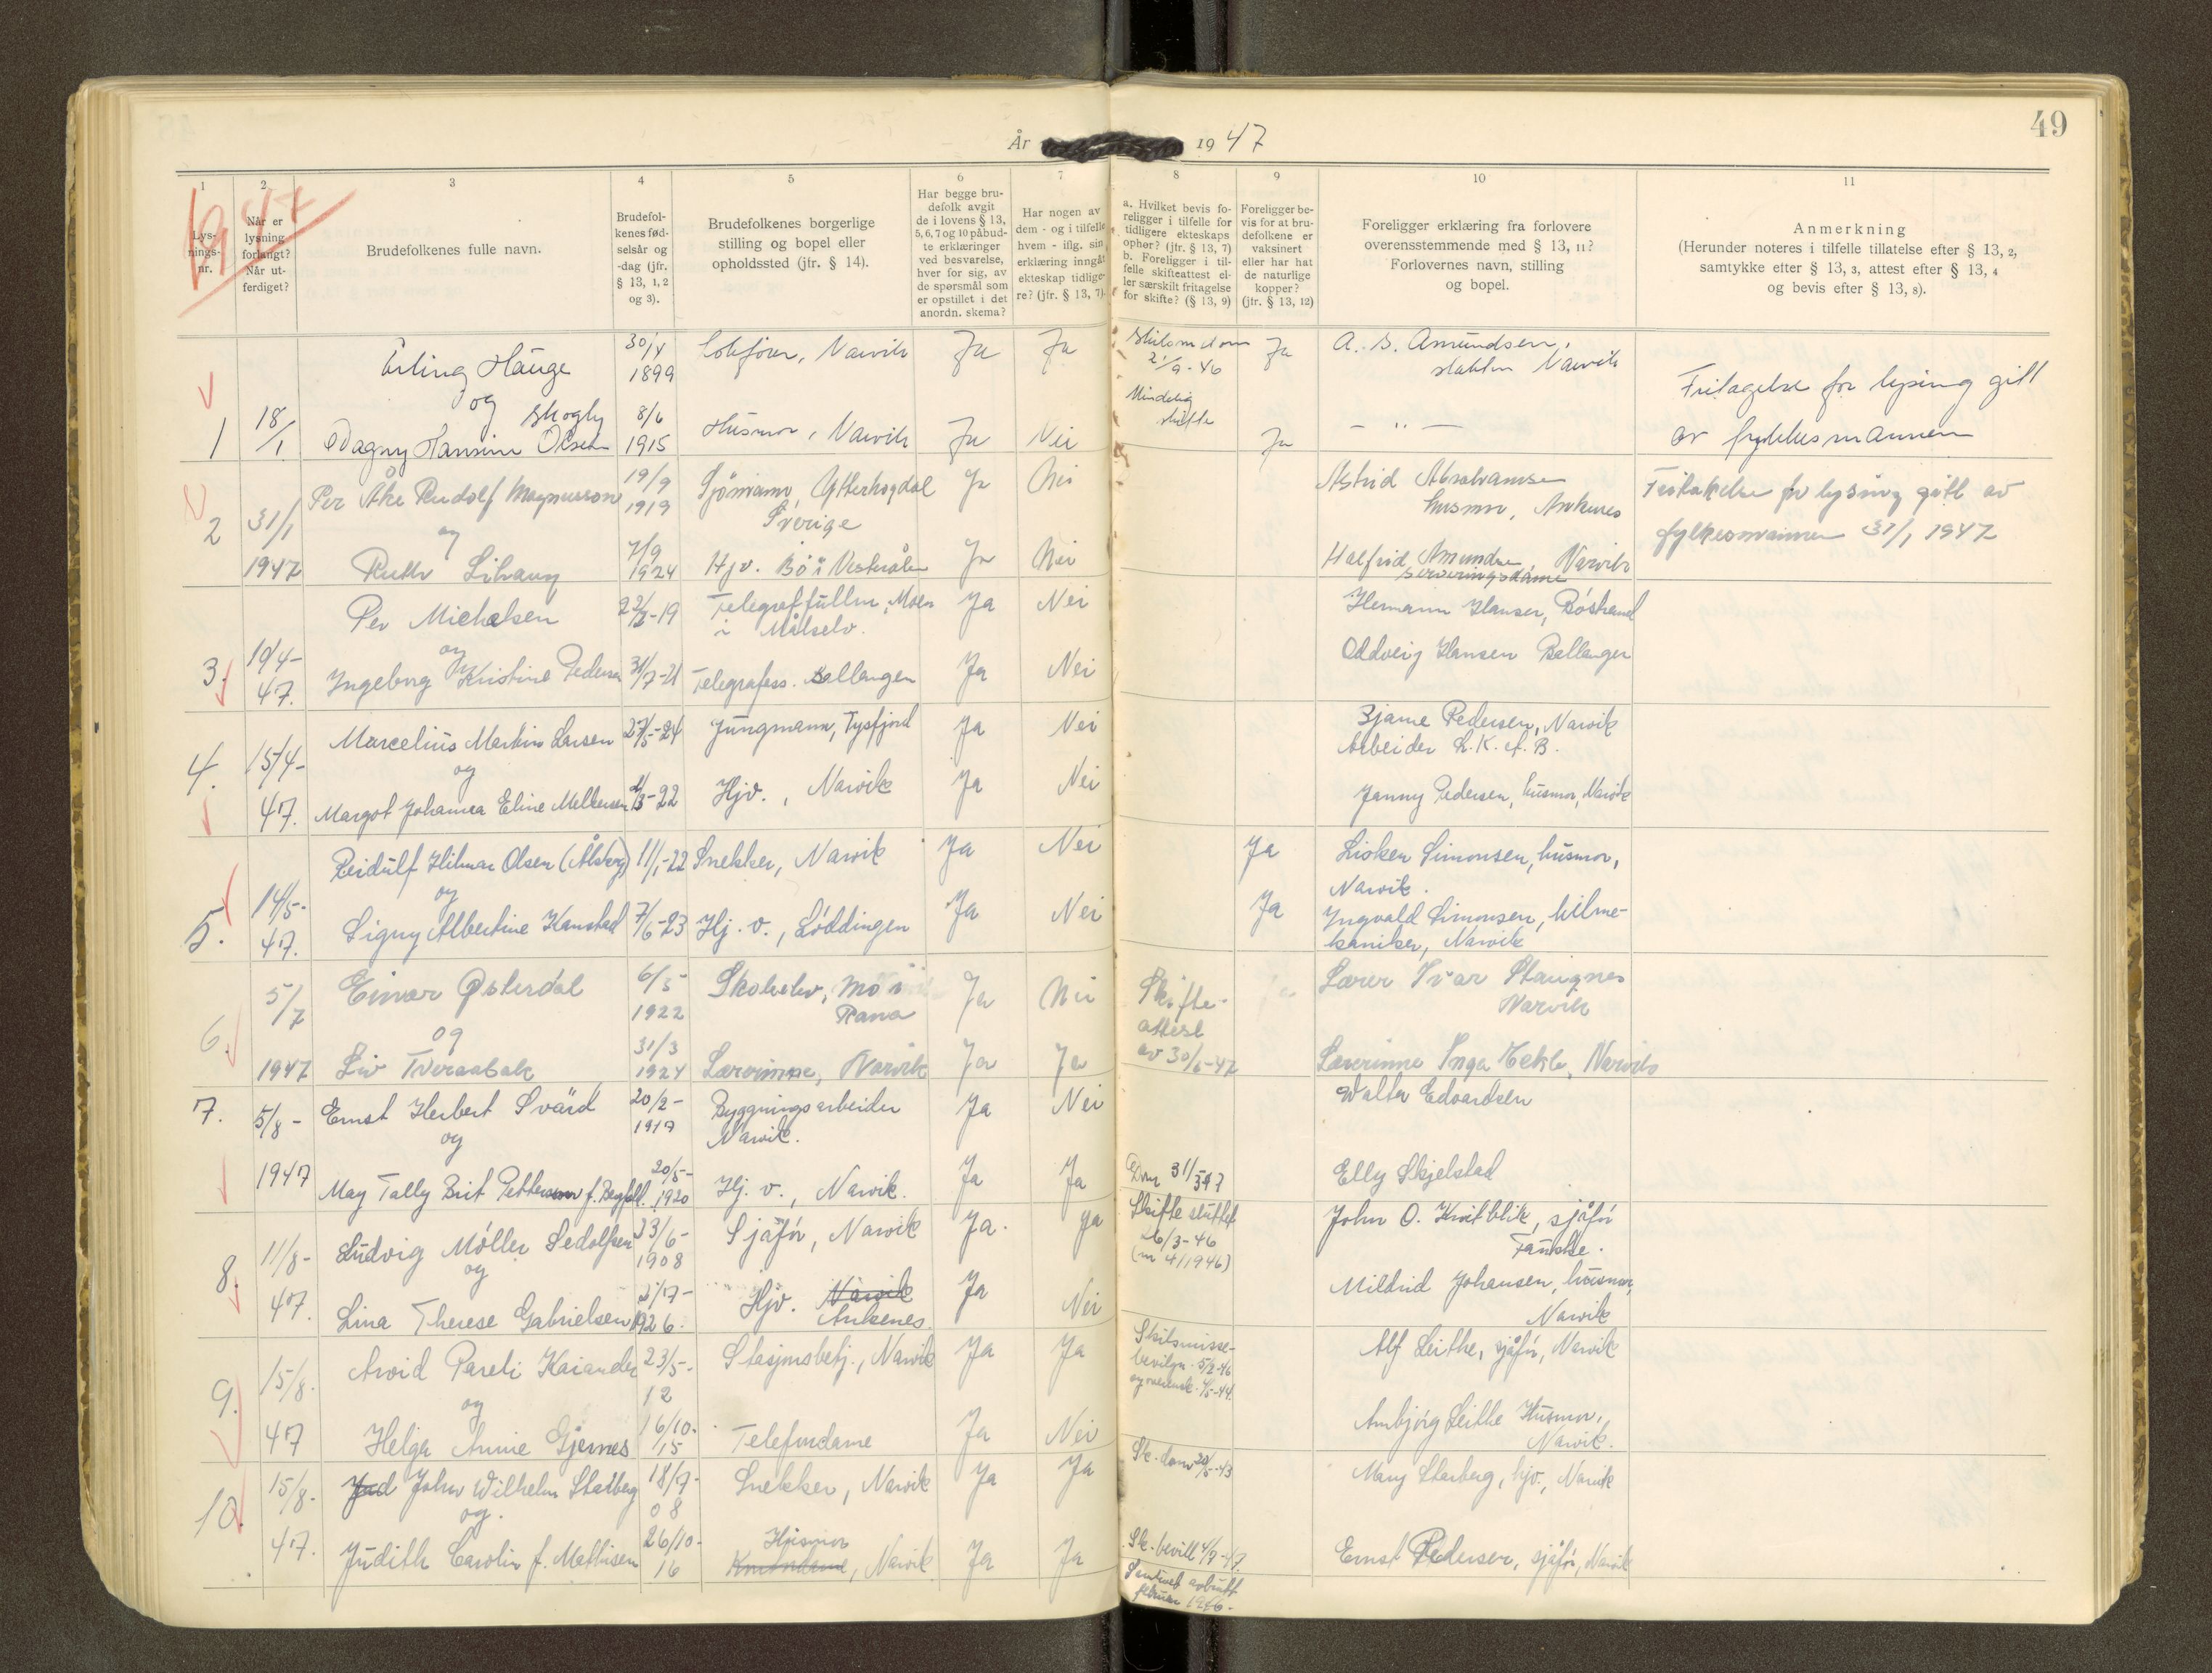 49
År 1947
1 2 3 4 5 6 7 8 9 10 11
1947
Lys-
nings-
nr.
Når er
lysning
forlangt?
Når ut-
ferdiget?
Brudefolkenes fulle navn.
Brudefol-
kenes fød-
selsår og
-dag (jfr.
§ 13, 1, 2
og 3).
Brudefolkenes borgerlige
stilling og bopel eller
opholdssted (jfr. § 14).
Har begge bru-
defolk avgit
de i lovens § 13,
5, 6, 7 og 10 påbud-
te erklæringer
ved besvarelse,
hver for sig, av
de spørsmål som
er opstillet i det
anordn. skema?
Har nogen av
dem - og i tilfelle
hvem - iflg. sin
erklæring inngått
ekteskap tidlige-
re? (jfr. § 13, 7).
a. Hvilket bevis fo-
religger i tilfelle for
tidligere ekteskaps
ophør? (jfr. § 13, 7)
b. Foreligger i til-
felle skifteattest el-
ler særskilt fritagelse
for skifte? (§ 13, 9)
Foreligger be-
vis for at bru-
defolkene er
vaksinert
eller har hat
de naturlige
kopper?
(jfr. § 13, 12)
Foreligger erklæring fra forlovere
overensstemmende med § 13, 11?
Forlovernes navn, stilling
og bopel.
Anmerkning
(Herunder noteres i tilfelle tillatelse efter § 13, 2,
samtykke efter § 13, 3, attest efter § 13, 4
og bevis efter § 13, 8).
1 18/1
Erling Hauge 30/4 1899 Lokfører, Narvik Ja Ja Skilsm dom 2/9-46 Ja A. S. Amundsen, Narvik
og
Skogly
Dagny Hansine Olsen 8/6 1915 Husmor, Narvik Ja Nei Mindelig skifte Ja — " —
Fritagelse for lysing gitt
av fylkesmannen
2 31/1 1947
Per Åke Rudolf Magnusson 19/9 1919 Sjömann, Ytterhogdal Sverige Ja Nei Astrid Abrahamsen husmor, Ankenes
og
Ruth 7/9 1924 Hjv. Bø i Vesterålen Ja Nei Halfrid Amundsen, Narvik serveringsdame
Fritakelse for lysing gitt av
fylkesmannen 31/1 1947
3. 19/4-47.
Per Michalsen 22/3-19 Telegraffullm, Moen i Målselv. Ja Nei Hermann Hansen, Bøstrand
og
Ingeborg Kristine Pedersen 31/7-21 Telegrafass. Ballangen Ja Nei Oddveig Hansen Ballangen
4. 15/4-47.
Marcelius Martin Larsen 27/5-24 Jungmann, Tysfjord Ja Nei Bjarne Pedersen, Narvik
Arbeider L.K.A.B.
og
Margot Johanna Eline Melkersen /3-22 Hjv., Narvik Ja Nei Janny Pedersen, husmor, Narvik
5. 14/5-47.
Reidulf Hilmar Olsen (Ålsberg) 11/1-22 Snekker, Narvik Ja Nei Ja Lisken Simonsen, husmor,
Narvik.
og
Signy Albertine Kanstad 7/6-23 Hj. v., Løddingen Ja Nei Ja Ingvald Simonsen, bilme-
kaniker, Narvik
6. 5/7 1947
Einar Østerdal 6/5 1922 Skoleelev, Mo i Rana Ja Nei Lærer Ivar Staugnes
Narvik
og
Liv Tveraabak 31/3 1924 Lærerinne, Narvik Ja Ja Skifte-
attest
av 30/6-47 Lærerinne Inga Tekle, Narvik
7. 5/8-1947
Ernst Herbert Svärd 20/2-1917 Bygningsarbeider
Narvik. Ja Nei Walter Edvardsen
og
May Tally Brit Pettersson f. Bergfall. 20/5-1920 Hj. v., Narvik. Ja Ja Dom 31/5 47 Elly Skjelstad
8. 11/8-47.
Ludvig Møller Sedolfsen 23/6-1908 Sjåfør, Narvik Ja. Ja Skifte sluttet
6/3-46
(nr 4/1946) John O. Kvitblik, sjåfør
Fauske.
og
Lina Therese Gabrielsen 21/7-1926. Hjv. Narvik
Ankenes. Ja Nei Mildrid Johansen, husmor,
Narvik
9. 15/8.47
Arvid Pareli Kaiander 23/5-12 Stasjonsbetj., Narvik Ja Ja Skilsmisse-
bevilgn. 5/2-46
Alf Leithe, sjåfør, Narvik
og
Helga Annie Gjernes 16/10-15 Telefondame Ja Nei Annbjørg Leithe Husmor,
Narvik.
10. 15/8-47.
Jud John Wilhelm Stalberg 18/7-08 Snekker, Narvik Ja Ja Sk. dom 20/5-43 Mary Starberg, hjv., Narvik
og.
Judith Carolin f. Mathisen 26/10-16 Husmor
Kontordame, Narvik Ja Ja Sk.-bevill 4/7-47.
Samlivet avbrutt
februar 1946.- Ernst Pedersen, sjåfør, Narvik